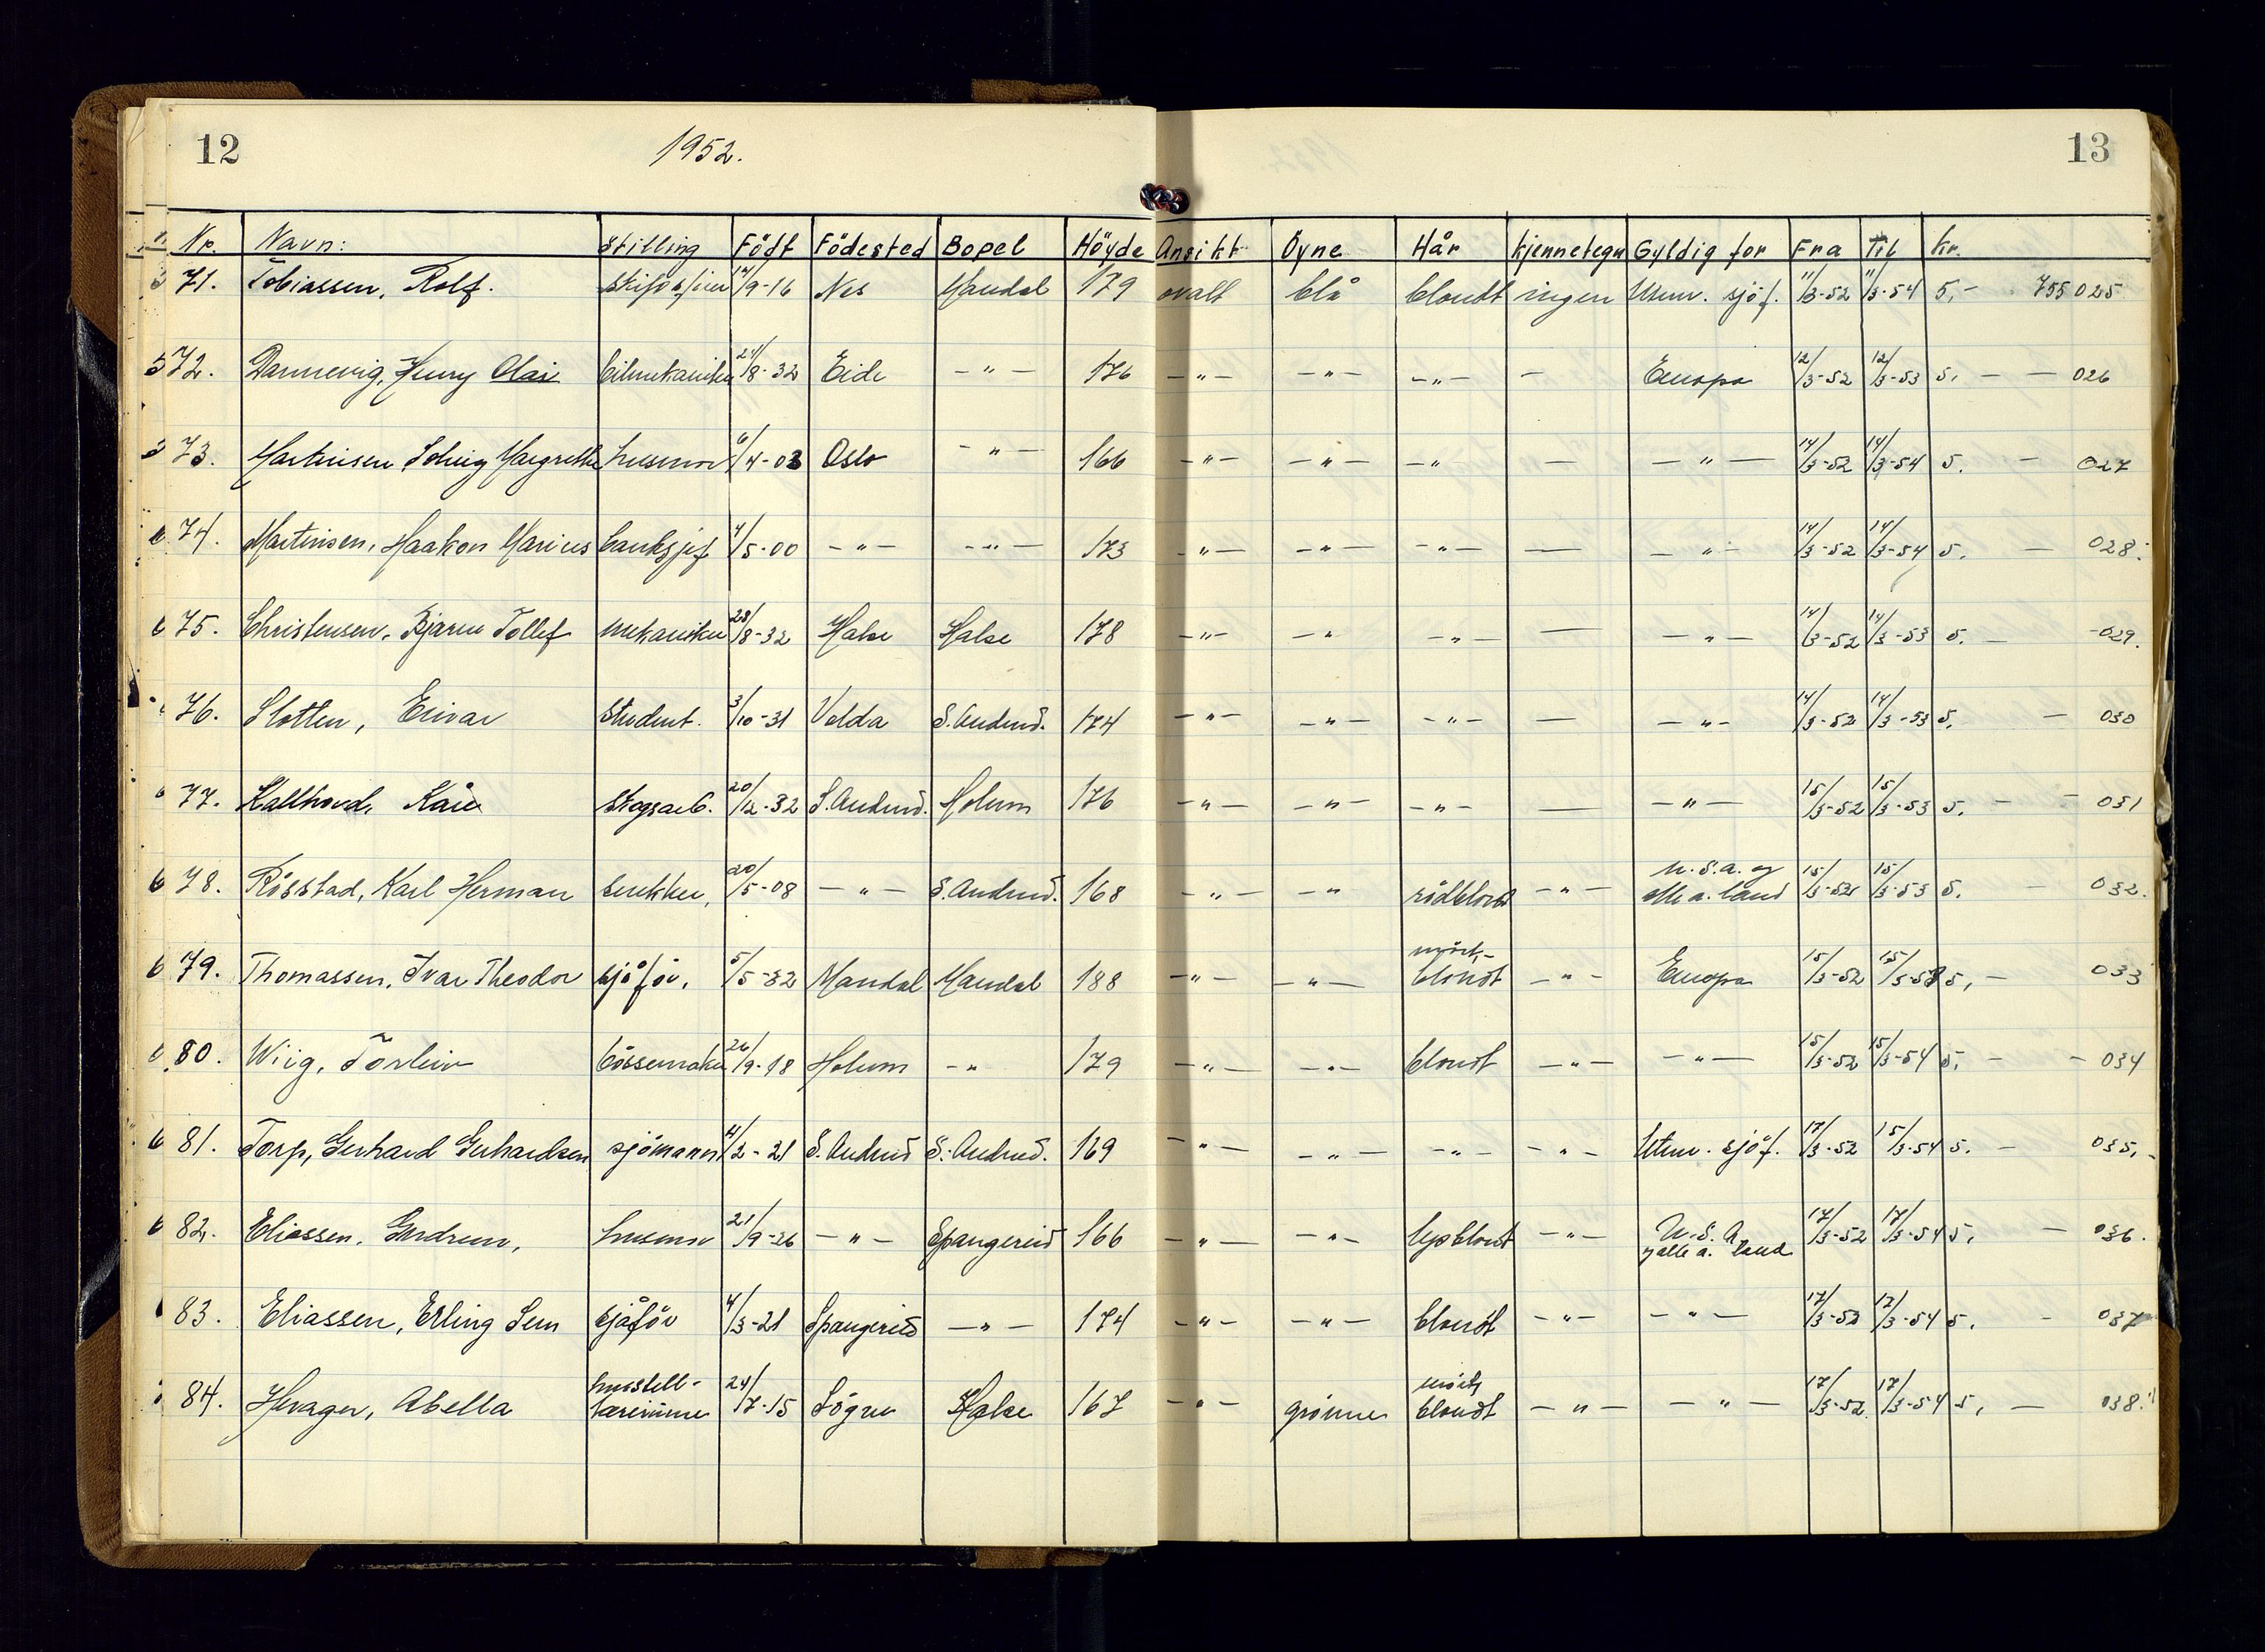 12
1952.
13
Nr. Navn: Stilling Födt Födested Bopel Höyde Ansikt Öyne Hår Kjennetegn Gyldig for Fra Til Kr.
71. Tobiassen, Rolf. 14/9-16 Nes Mandal 179 ovalt blå blondt ingen Utenr. sjöf. 11/3-52 11/3-54 5,- 755 025
72. Dannevig, Henry Olai bilmekaniker 24/8-32 Eide -"- 176 -"- -"- -"- - Europa 12/3-52 12/3-53 5, - - 026
73. Martinsen Solveig Margrethe husmor 6/4-03 Oslo -"- 166 -"- -"- -"- - -"- 14/3-52 14/3-54 5. - 027
74. Martinsen, Haakon Marius banksjef 4/5-00 -"- -"- 173 -"- -"- -"- - -"- 14/3-52 14/3-54 5. - 028.
75. Christensen, Bjarne Tollef mekaniker 28/8-32 Halse Halse 178 -"- -"- -"- - -"- 14/3-52 14/3-53 5. - 029.
76. Slotten, Eivar student. 3/10-31 Volda S. Audned. 174 -"- -"- -"- - -"- 14/3-52 14/3-53 5. - 030
77. Kallhovd, Kåre skogsarb. 20/12-32 S. Audned. Holum 176 -"- -"- -"- - -"- 15/3-52 15/3-53 5. - - 031
78. Rösstad, Karl Herman snekker, 20/5-08 -"- S. Audned. 168 -"- -"- rödblond -"- U.S.A. og alle a. land 15/3-52 15/3-53 5. - 032.
79. Thomassen, Ivar Theodor sjåför, 5/5-32 Mandal Mandal 188 -"- -"- mörk- blondt -"- Europa 15/3-52 15/3-53 5, - 033
80. Wiig, Torleiv bössemaker 26/9-18 Holum -"- 179 -"- -"- blondt -"- -"- 15/3-52 15/3-54 5, - - 034
81. Torp, Gerhard Gerhardsen sjömann 11/2-21 S. Audned S. Audned. 169 -"- -"- -"- -"- Utenr. sjöf. 17/3-52 15/3-54 5. - 035,-
82. Eliassen, Gudrun, husmor 21/9-26 -"- Spangereid 166 -"- -"- lysblondt -"- U.S.A og alle a. land 17/3-52 17/3-54 5, - 036.
83. Eliassen, Erling Sem sjåför 4/3-21 Spangereid -"- 174 -"- -"- blondt -"- -"- 17/3-52 17/3-54 5, - 037
84. Hevager, Abella husstell- lærerinne 24/7-15 Sögne Halse 167 -"- grönne mörk, blondt -"- -"- 17/3-52 17/3-54 5, - 038.